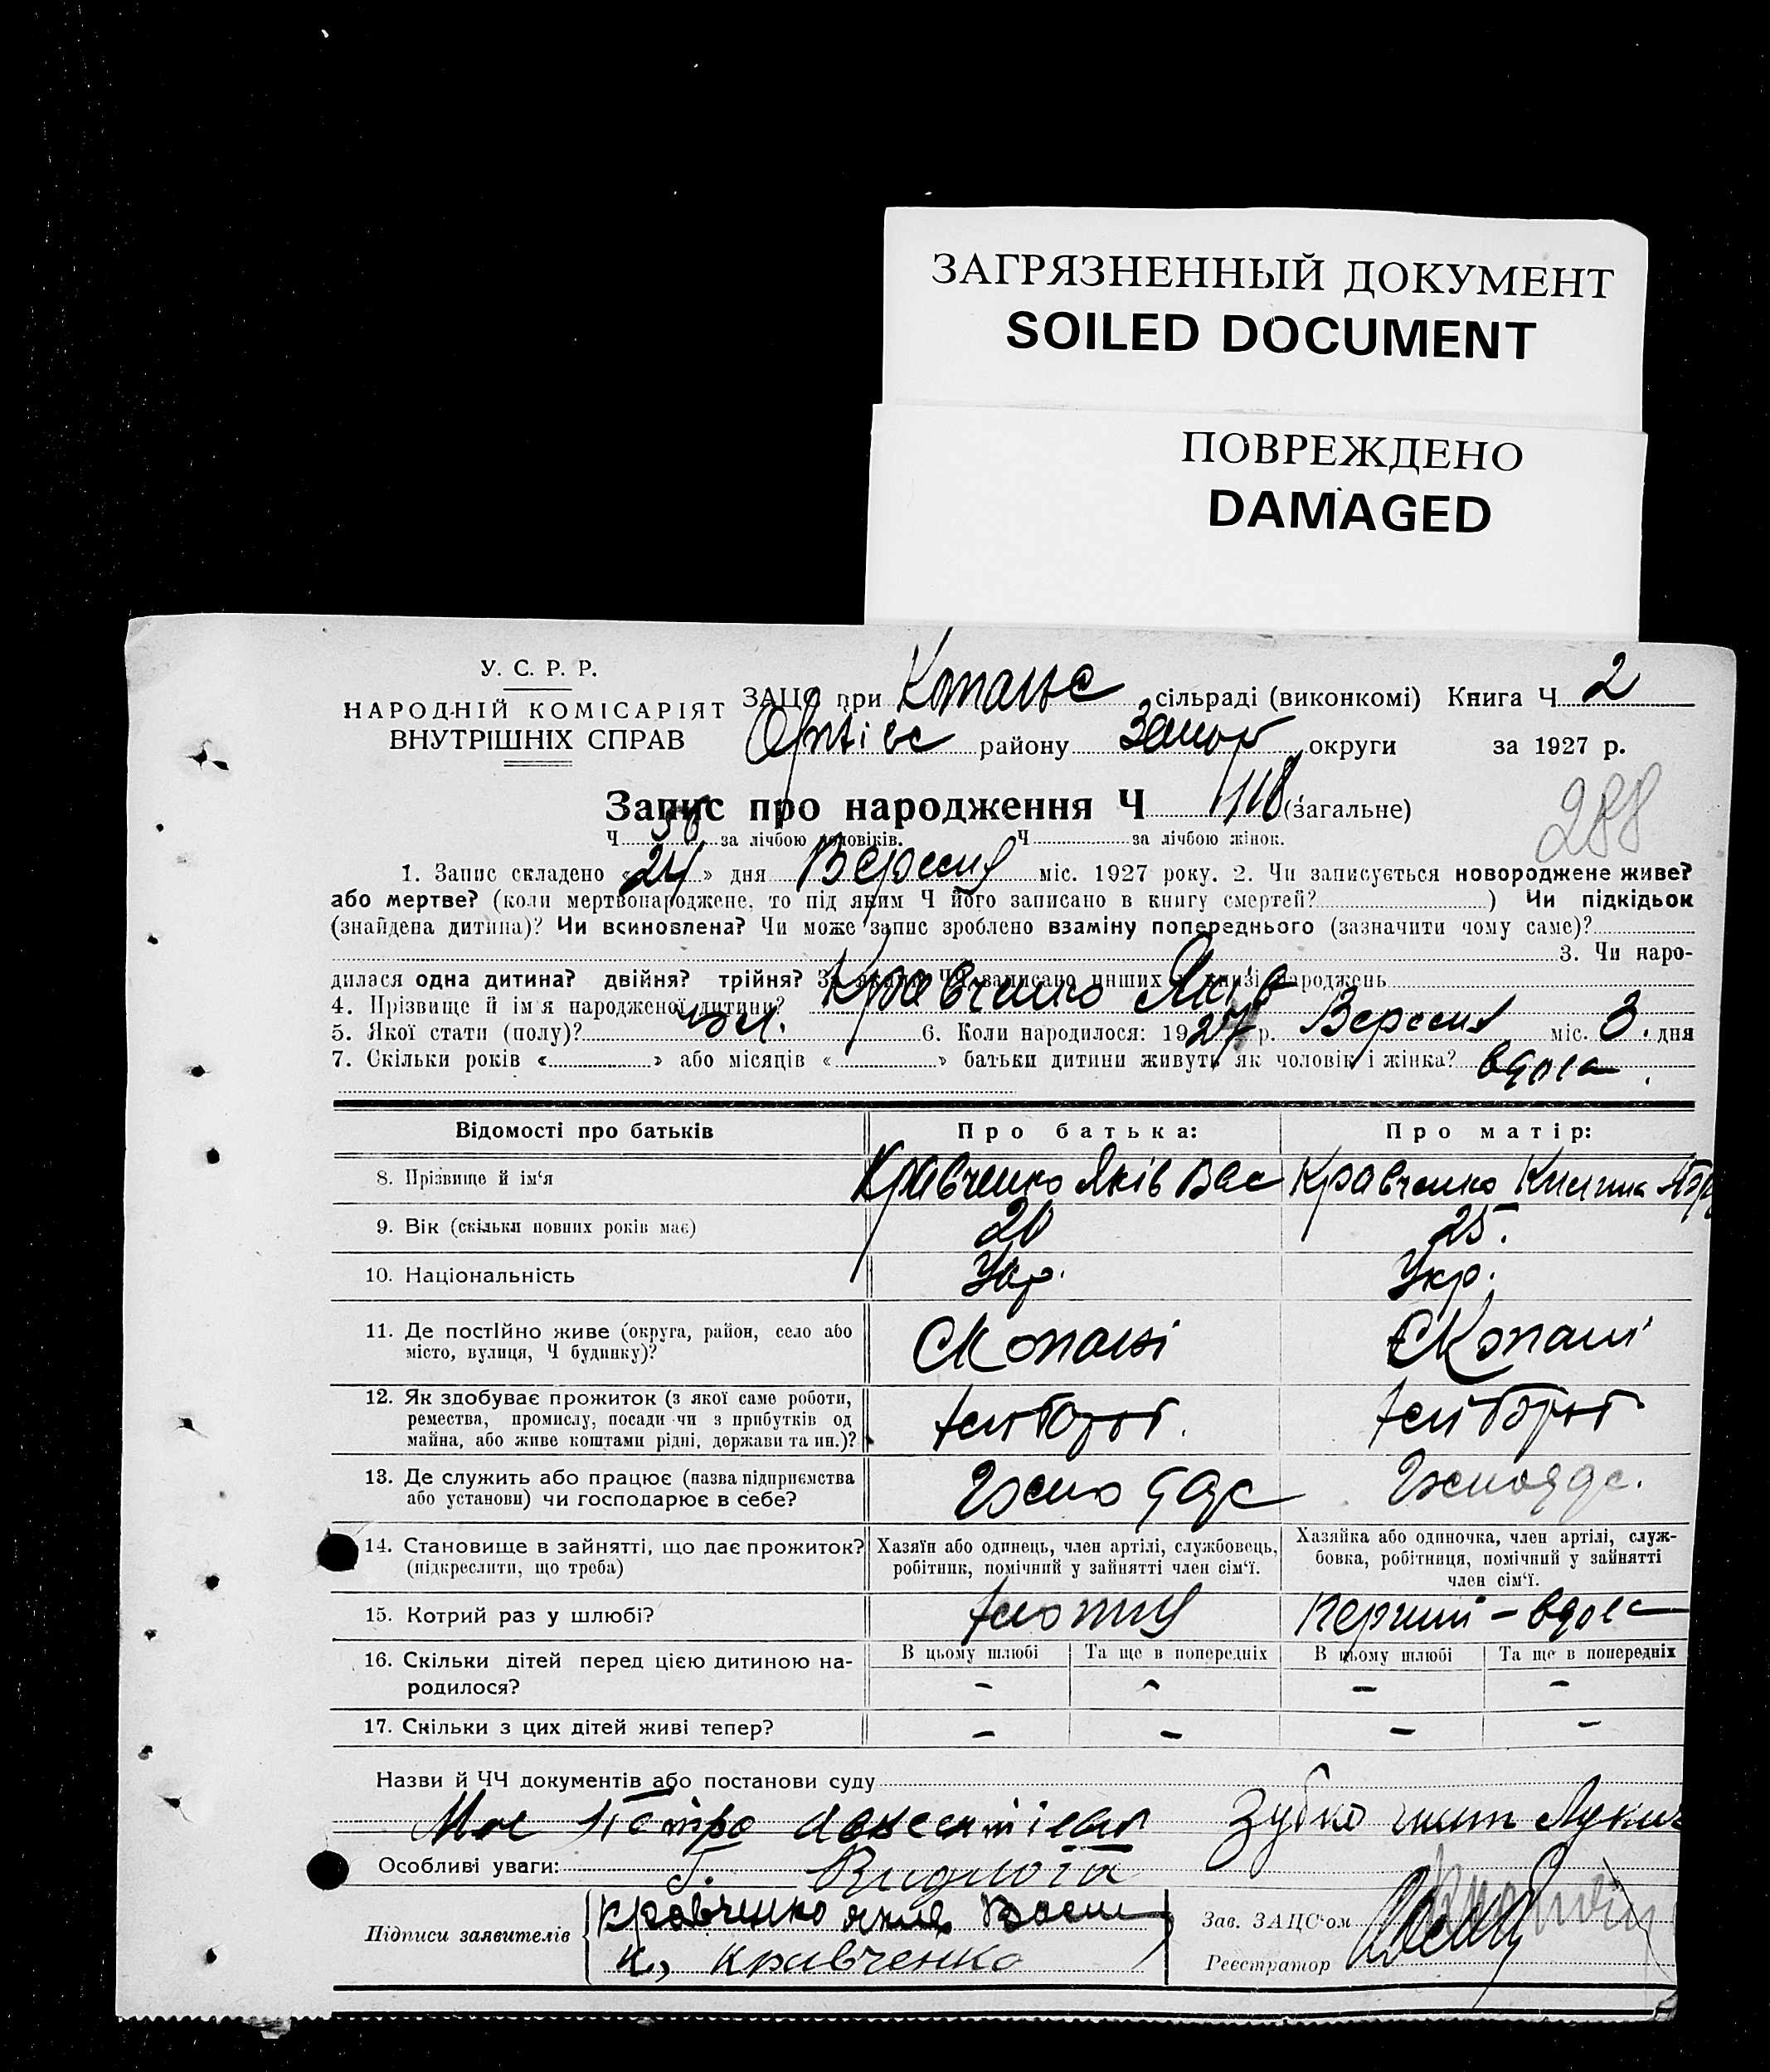 ЗАГРЯЗНЕННЫЙ ДОКУМЕНТ
SOILED DOCUMENT
ПОВРЕЖДЕНО
DAMAGED
У. С. Р. Р.
НАРОДНІЙ КОМІСАРІЯТ
ВНУТРІШНІХ СПРАВ
ЗАЦС при Копансь сільраді (виконкомі) Книга Ч 2
Оріхівс району Запор округи за 1927 р.
Запис про народження Ч 118 (загальне)
288
Ч за лічбою чоловіків. Ч за лічбою жінок.
1. Запис складено «24» дня Вересня міс. 1927 року. 2. Чи записується новороджене живе?
або мертве? (коли мертвонароджене, то під яким Ч його записано в книгу смертей? ) Чи підкідьок
(знайдена дитина)? Чи всиновлена? Чи може запис зроблено взаміну попереднього (зазначити чому саме)?
3. Чи наро-
дилася одна дитина? двійня? трійня? За якими ЧЧ записано инших у книзі народжень
4. Прізвище й ім'я народженої дитини? Кравченко Яків
5. Якої стати (полу)? чол. 6. Коли народилося: 1927 р. Вересня міс. 3. дня
7. Скільки років « » або місяців « » батьки дитини живуть як чоловік і жінка? вдова.
Відомості про батьків Про батька: Про матір:
8. Прізвище й ім'я Кравченко Яків Вас Кравченко
9. Вік (скільки повних років має) 20 25.
10. Національність Укр. Укр.
11. Де постійно живе (округа, район, село або
місто, вулиця, Ч будинку)? С Копані С Копані
12. Як здобуває прожиток (з якої саме роботи,
ремества, промислу, посади чи з прибутків од
майна, або живе коштами рідні, держави та ин.)?
13. Де служить або працює (назва підприємства
або установи) чи господарює в себе?
14. Становище в зайнятті, що дає прожиток?
(підкреслити, що треба)
Хазяїн або одинець, член артілі, службовець,
робітник, помічний у зайнятті член сім'ї.
Хазяйка або одиночка, член артілі, служ-
бовка, робітниця, помічний у зайнятті
член сім'ї.
15. Котрий раз у шлюбі? перший – вдова
16. Скільки дітей перед цією дитиною на-
родилося?
В цьому шлюбі Та ще в попередніх В цьому шлюбі Та ще в попередніх
- - - -
17. Скільки з цих дітей живі тепер? - - - -
Назви й ЧЧ документів або постанови суду
Зубко
Особливі уваги:
Підписи заявителів Кравченко
К., Кравченко
Зав. ЗАЦС'ом
Реєстратор